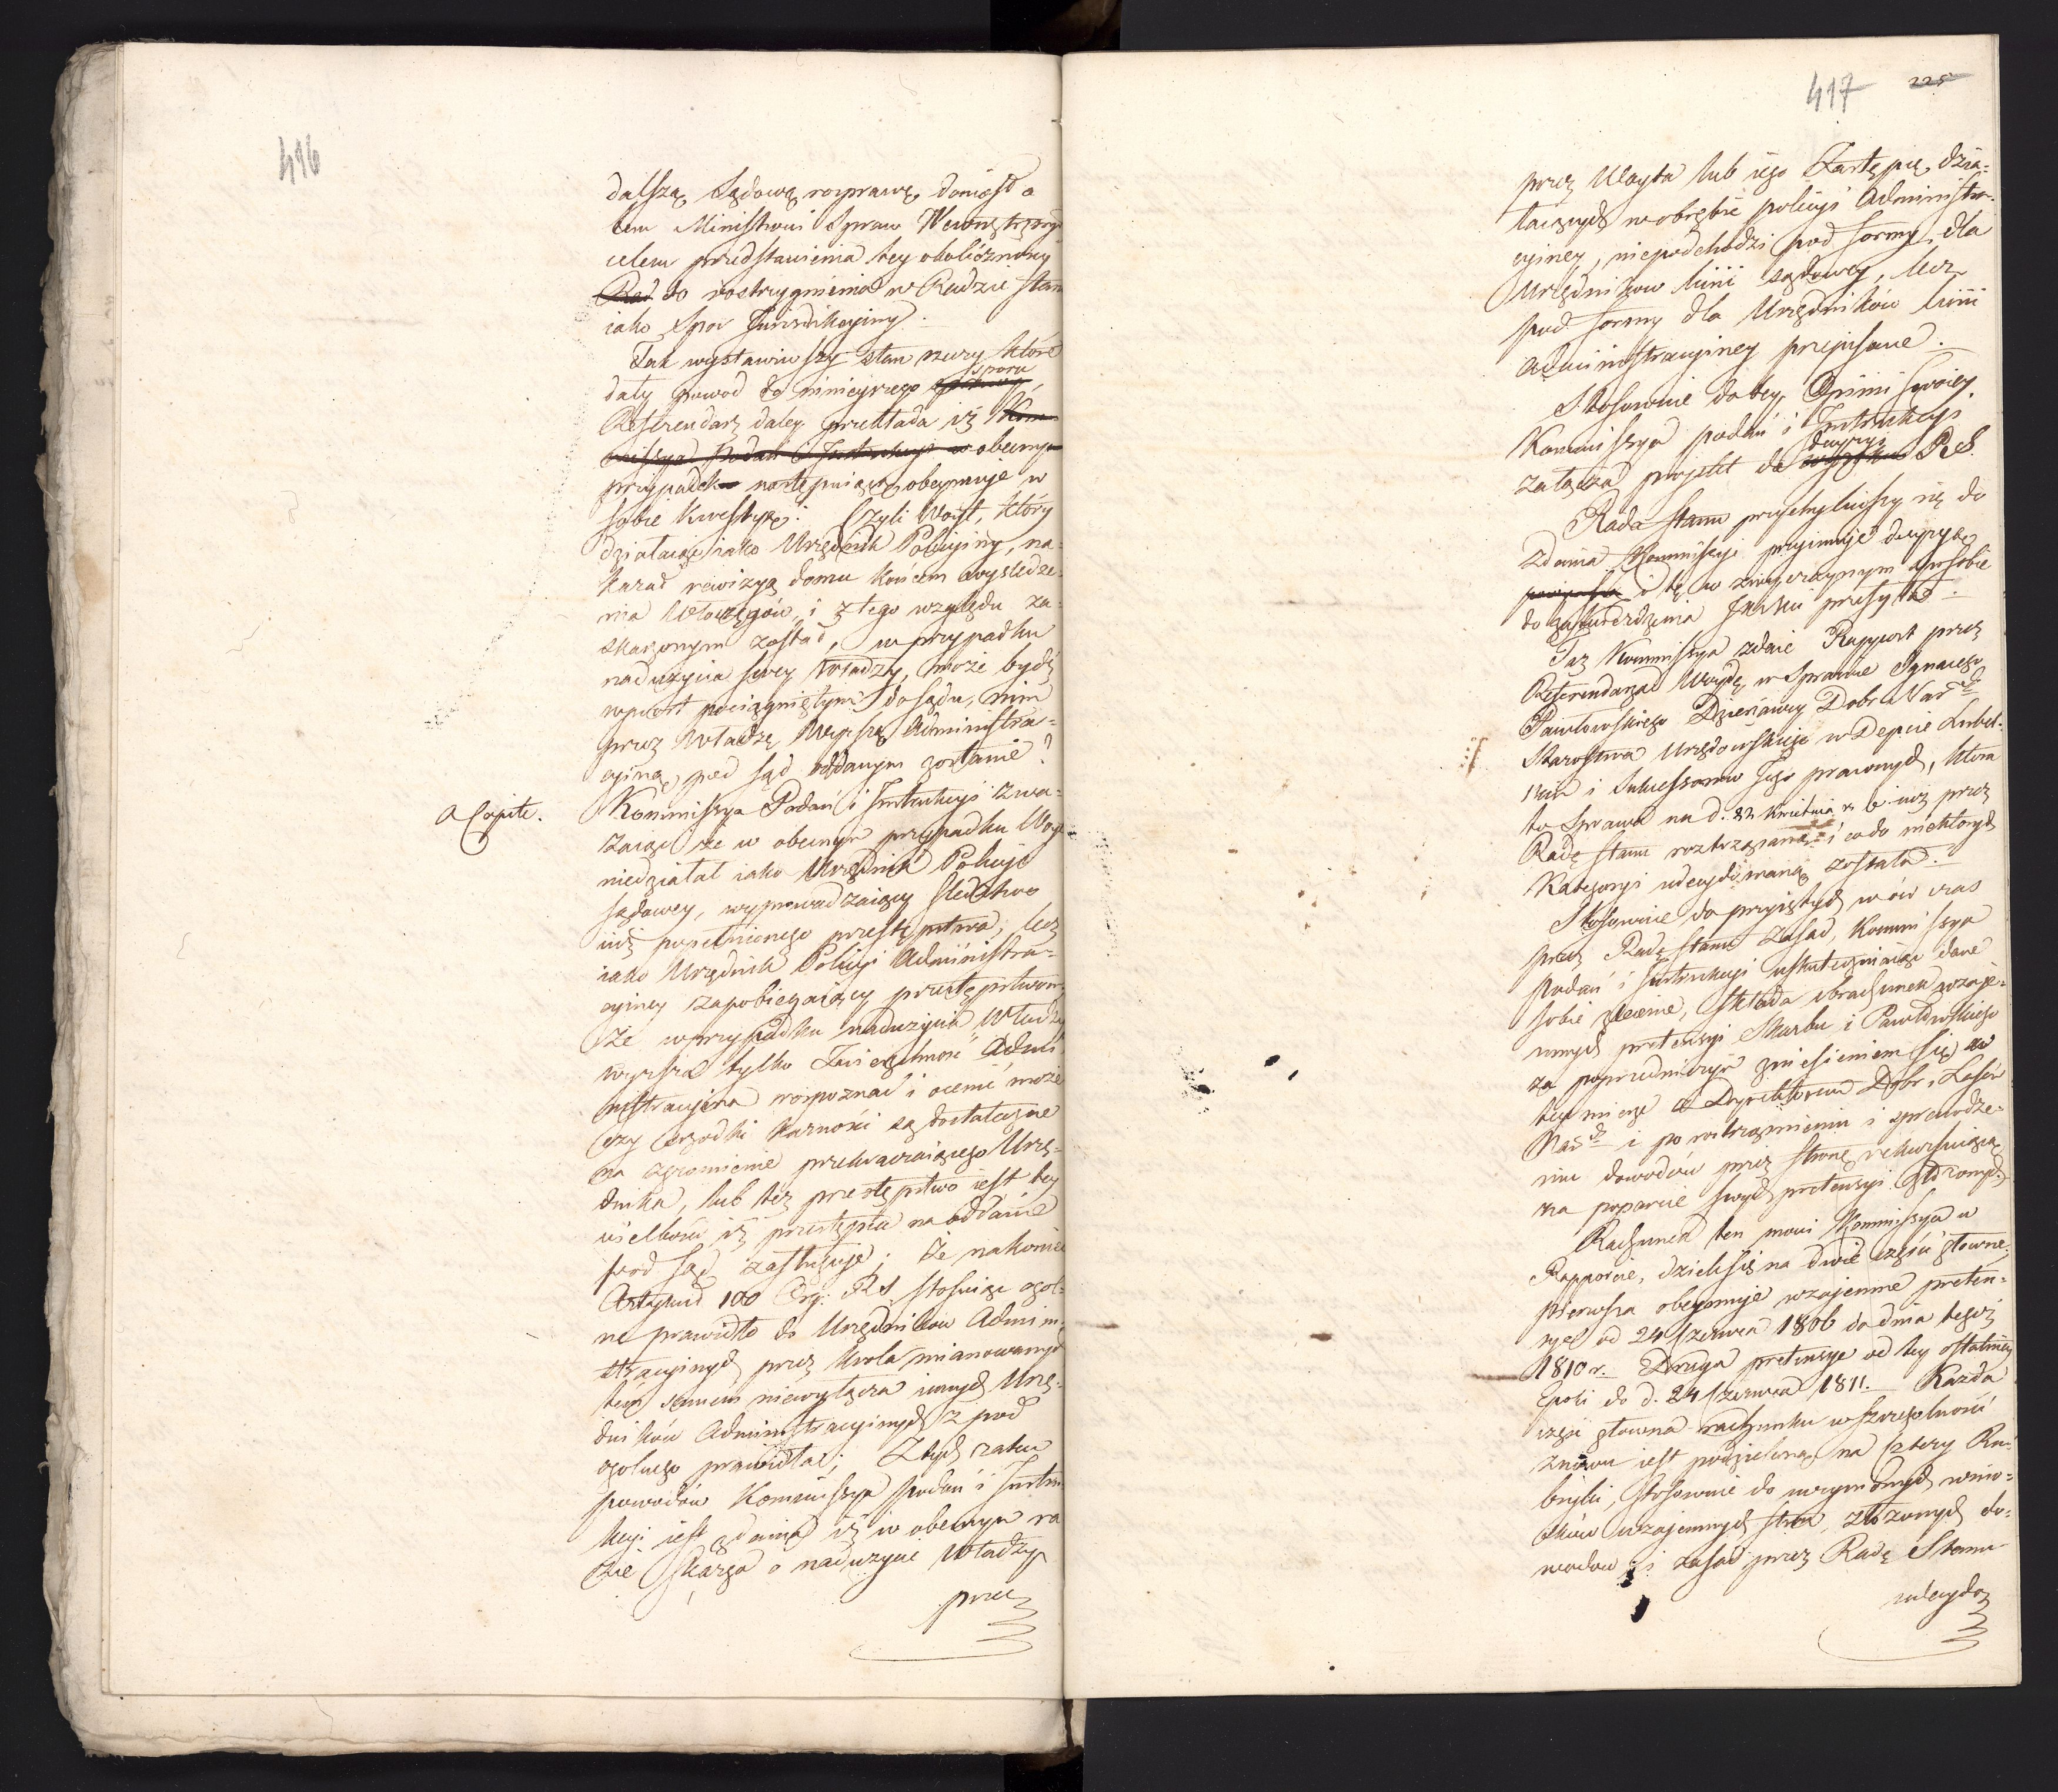 416
dalszą Sądową rozprawę doniósł o
tem Ministrowi Spraw Wewnętrznych
celem przedstawienia tey okoliczności
Rad do rostrzygnienia w Radzie Stanu
iako Spor Jurisdikcyiny.
Tak wystawiwszy stan rzeczy które
dały powod do ninieyszego sporu
Referendarz daley przekłada iż Kom-
missya Podań i Instrukcyi w obecnym
przypadek następuiącą obeymuje w
sobie kwestyą: Czyli Woyt, który
działaiąc iako Urzędnik Policyiny, na-
kazał rewizyą domu końcem wyśledze-
nia Włoczęgów, i z tego względu za-
skarżonym został, w przypadku
nadużycia swey Władzy, może bydź
wprost pociągniętym do sądu, nim
przez Władzę Wyższą Administra-
cyiną pod sąd oddanym zostanie?
a Capite.
Kommissya Podań i Instrukcyi zwa-
żaiąc że w obecnym przypadku Woyt
niedziałał iako Urzędnik Policyi
sądowey, wyprowadzaiący śledztwo
iuż popełnionego przestępstwa, lecz
iako Urzędnik Policyi Administra-
cyiney zapobiegaiący przestępstwom
Że w przypadku nadużycia Władzy
wyższa tylko Zwierzchność Admi-
nistracyina rozpoznać i ocenić może
czy srzodki karności są dostateczne
na zgromienie przekraczaiącego Urzę-
dnika, lub też przestępstwo iest tey
wielkości iż przestępca na oddanie
pod sąd zasługuje; Że nakoniec
Artykuł 100 Org: RS stosuiąc ogol-
ne prawidło do Urzędników Admini-
stracyinych przez Krola mianowanych
tem samem niewyłącza innych Urzę-
dników Administracyinych z pod
ogolnego prawidła; Z tych zatem
powodów Kommissya Podań i Instru-
kcyi iest zdania iż w obecnym ra-
zie skarga o nadużycie Władzy
przez
417 225
przez Woyta lub iego Zastępcę dzia-
łaiących w obrębie policyi Administra-
cyiney, niepodchodzi pod formy dla
Urzędników linii sądowey, lecz
pod formy dla Urzędników linii
administracyiney przepisane.
Stosownie do tey Opinii swoiey
Kommissya podań i Instrukcyi
załącza projekt do decyzyi R.S.
Rada Stanu przychyliwszy się do
zdania Kommissyi przyimuje decyzyą
i tę w zwyczaynym sposobie
do zatwierdzenia JKMci przesyła.
Taż Kommissya zdaie Rapport przez
Referendarza Woydę w Sprawie Ignacego
Pawłowskiego Dzierżawcy Dobr Nar.ch
Starostwa Urzędowskiego w Depcie Lubel-
skim i Sukcessorow Jego prawnych, która
to Sprawa na d. 22 Kwietnia r. b. iuż przez
Radę Stanu roztrząsaną i co do niektorych
Kategoryi udecydowaną została.
Stosownie do przyiętych w ów czas
przez Radę Stanu zasad, Kommissya
Podań i Instrukcyi uskuteczniaiąc dane
sobie zlecenie, składa obrachunek wzaje-
mnych pretensyi Skarbu i Pawłowskiego
za poprzedniczym zniesieniem się w
tey mierze z Dyrektorem Dobr i Lasów
Nar.ch i po roztrząśnieniu i sprawdze-
niu dowodów przez stronę rekursuiącą
na poparcie swych pretensyi złożonych.
Rachunek ten mowi Kommissya w
Rapporcie, dzieli się na dwie części głowne:
pierwsza obeymuje wzajemne preten-
sye od 24 Czerwca 1806 do dnia tegoż
1810 r. Druga pretensye od tey ostatniey
epoki do d. 24 Czerwca 1811. Każda
część głowna rachunku w szczegolności
znowu iest podzielona na cztery Ru-
bryki, stosownie do uczynionych wnio-
sków wzajemnych stron, złożonych do-
wodow i zasad przez Radę Stanu
udecydo